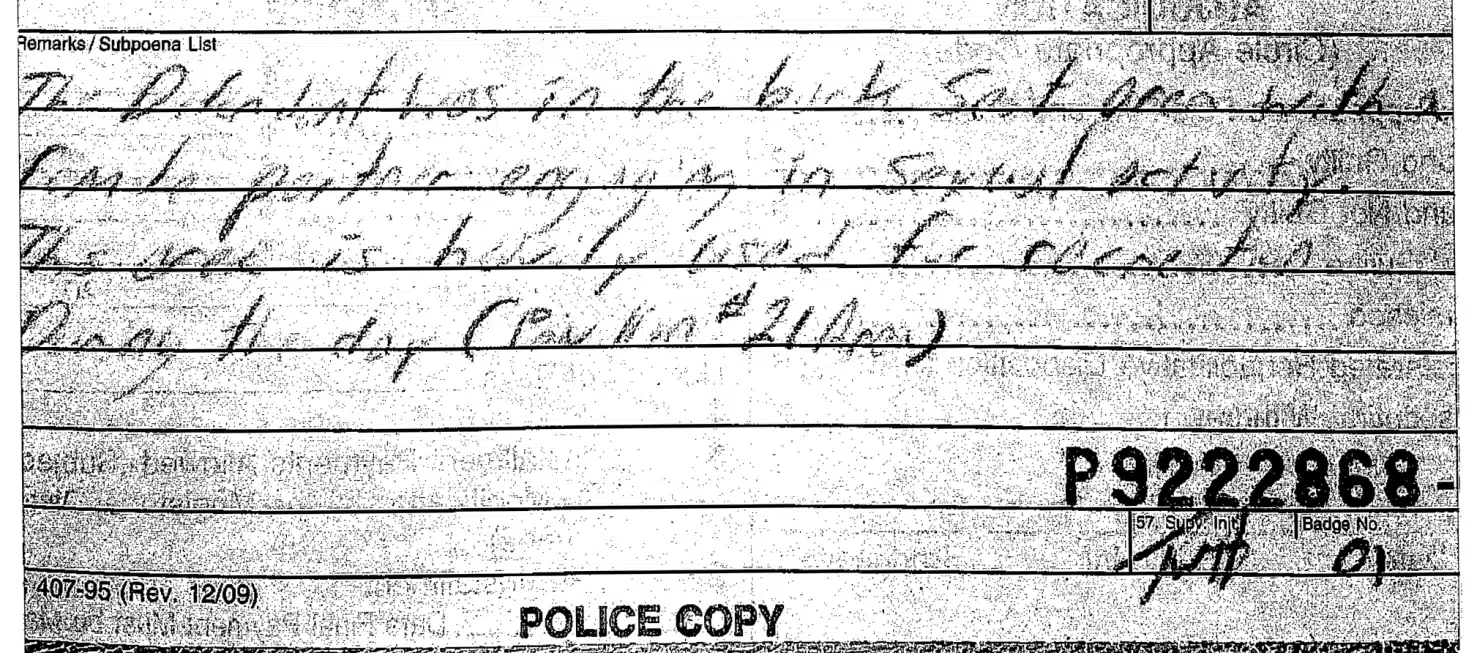 Remarks / Subpoena List
The Defendant was in the back seat area with a
female partner engaging in sexual activity.
The area is heavily used for recreation
During the day (
P9222868-
57. Supv. Init. Badge No.
01
407-95 (Rev. 12/09)
POLICE COPY